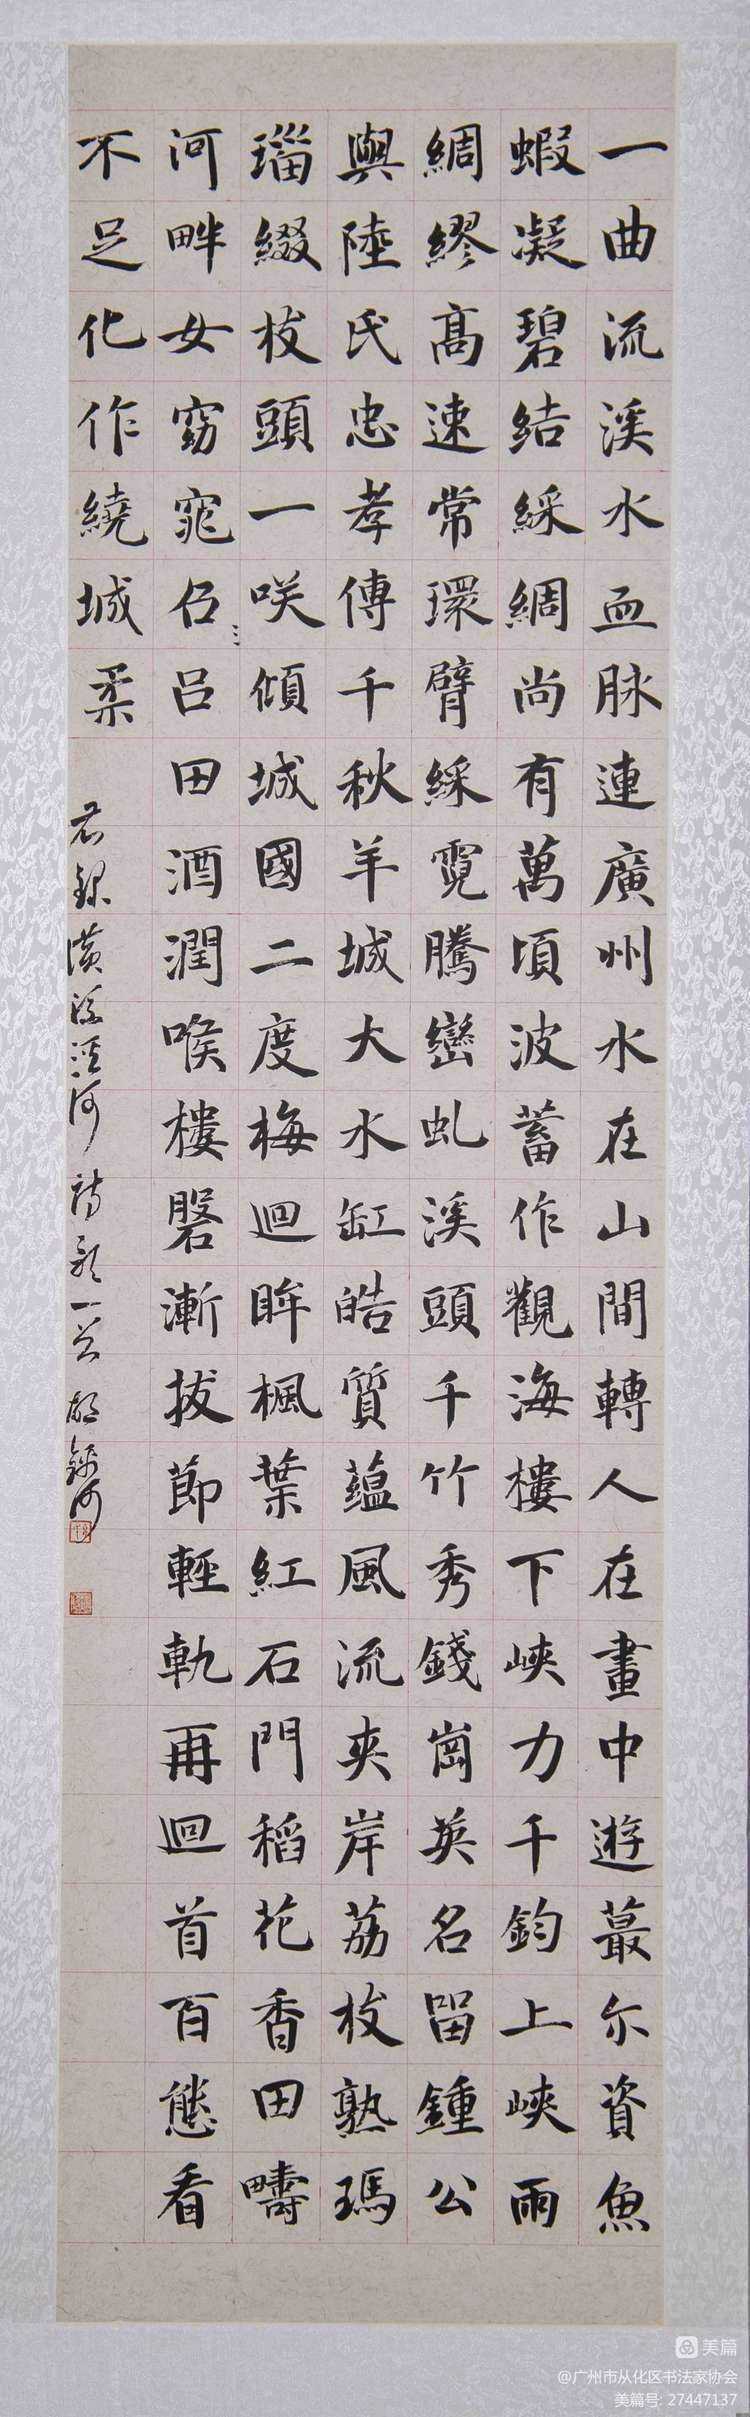 一曲流溪水血脉連廣州水在山間轉人在畫中遊蕞尔資魚
蝦凝碧結綵綢尚有萬頃波蓄作觀海樓下峽力千鈞上峽雨
綢繆高速常環臂綵霓騰巒虬溪頭千竹秀錢崗英名留鍾公
與陸氏忠孝傳千秋羊城大水缸皓質蘊風流夾岸荔枝熟瑪
瑙綴枝頭一咲傾城國二度梅迴眸楓葉紅石門稻花香田疇
河畔女窈窕呂田酒潤喉樓磐漸拔節輕軌再迴首百態看
不足化作繞城柔
右錄 詩歌一首
美篇
@广州市从化区书法家协会
美篇号: 27447137